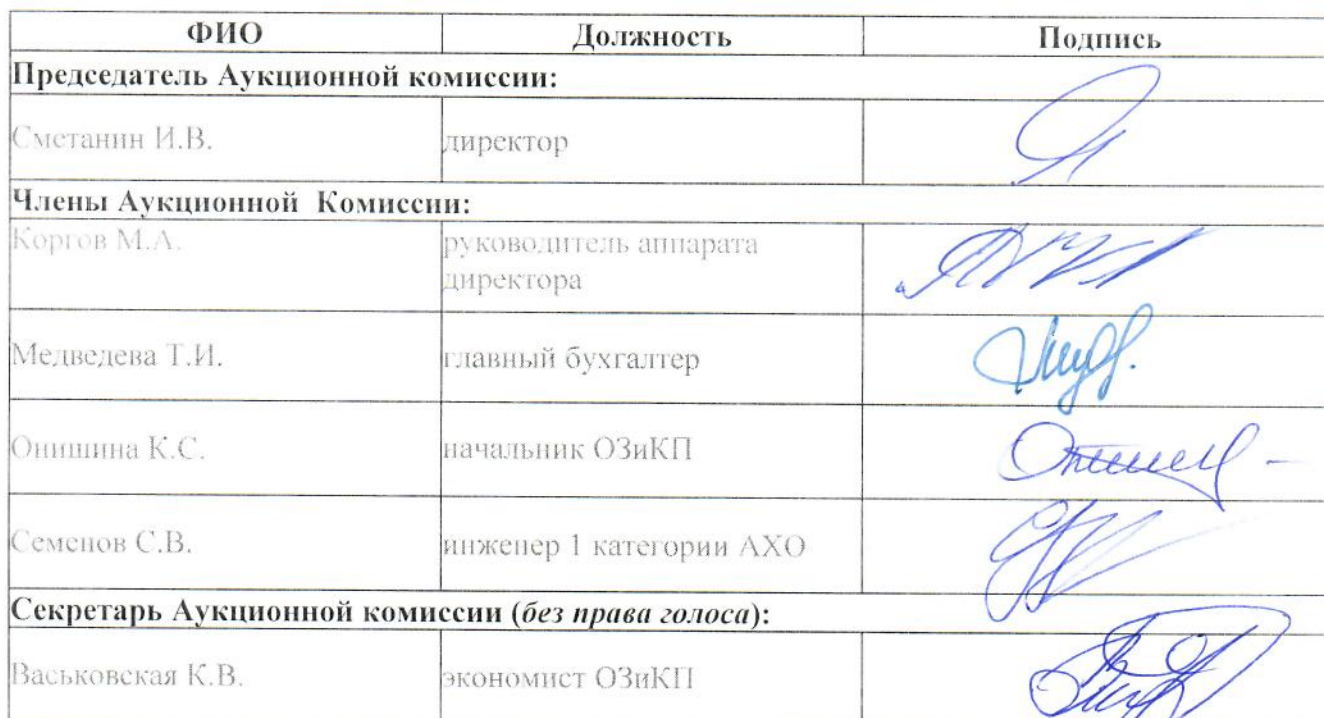 ФИО Должность Подпись
Председатель Аукционной комиссии:
Сметанин И.В. директор
Члены Аукционной Комиссии:
Коргов М.А. руководитель аппарата
директора
Медведева Т.И. главный бухгалтер
Онишина К.С. начальник ОЗиКП
Семенов С.В. инженер 1 категории АХО
Секретарь Аукционной комиссии (без права голоса):
Васьковская К.В. экономист ОЗиКП